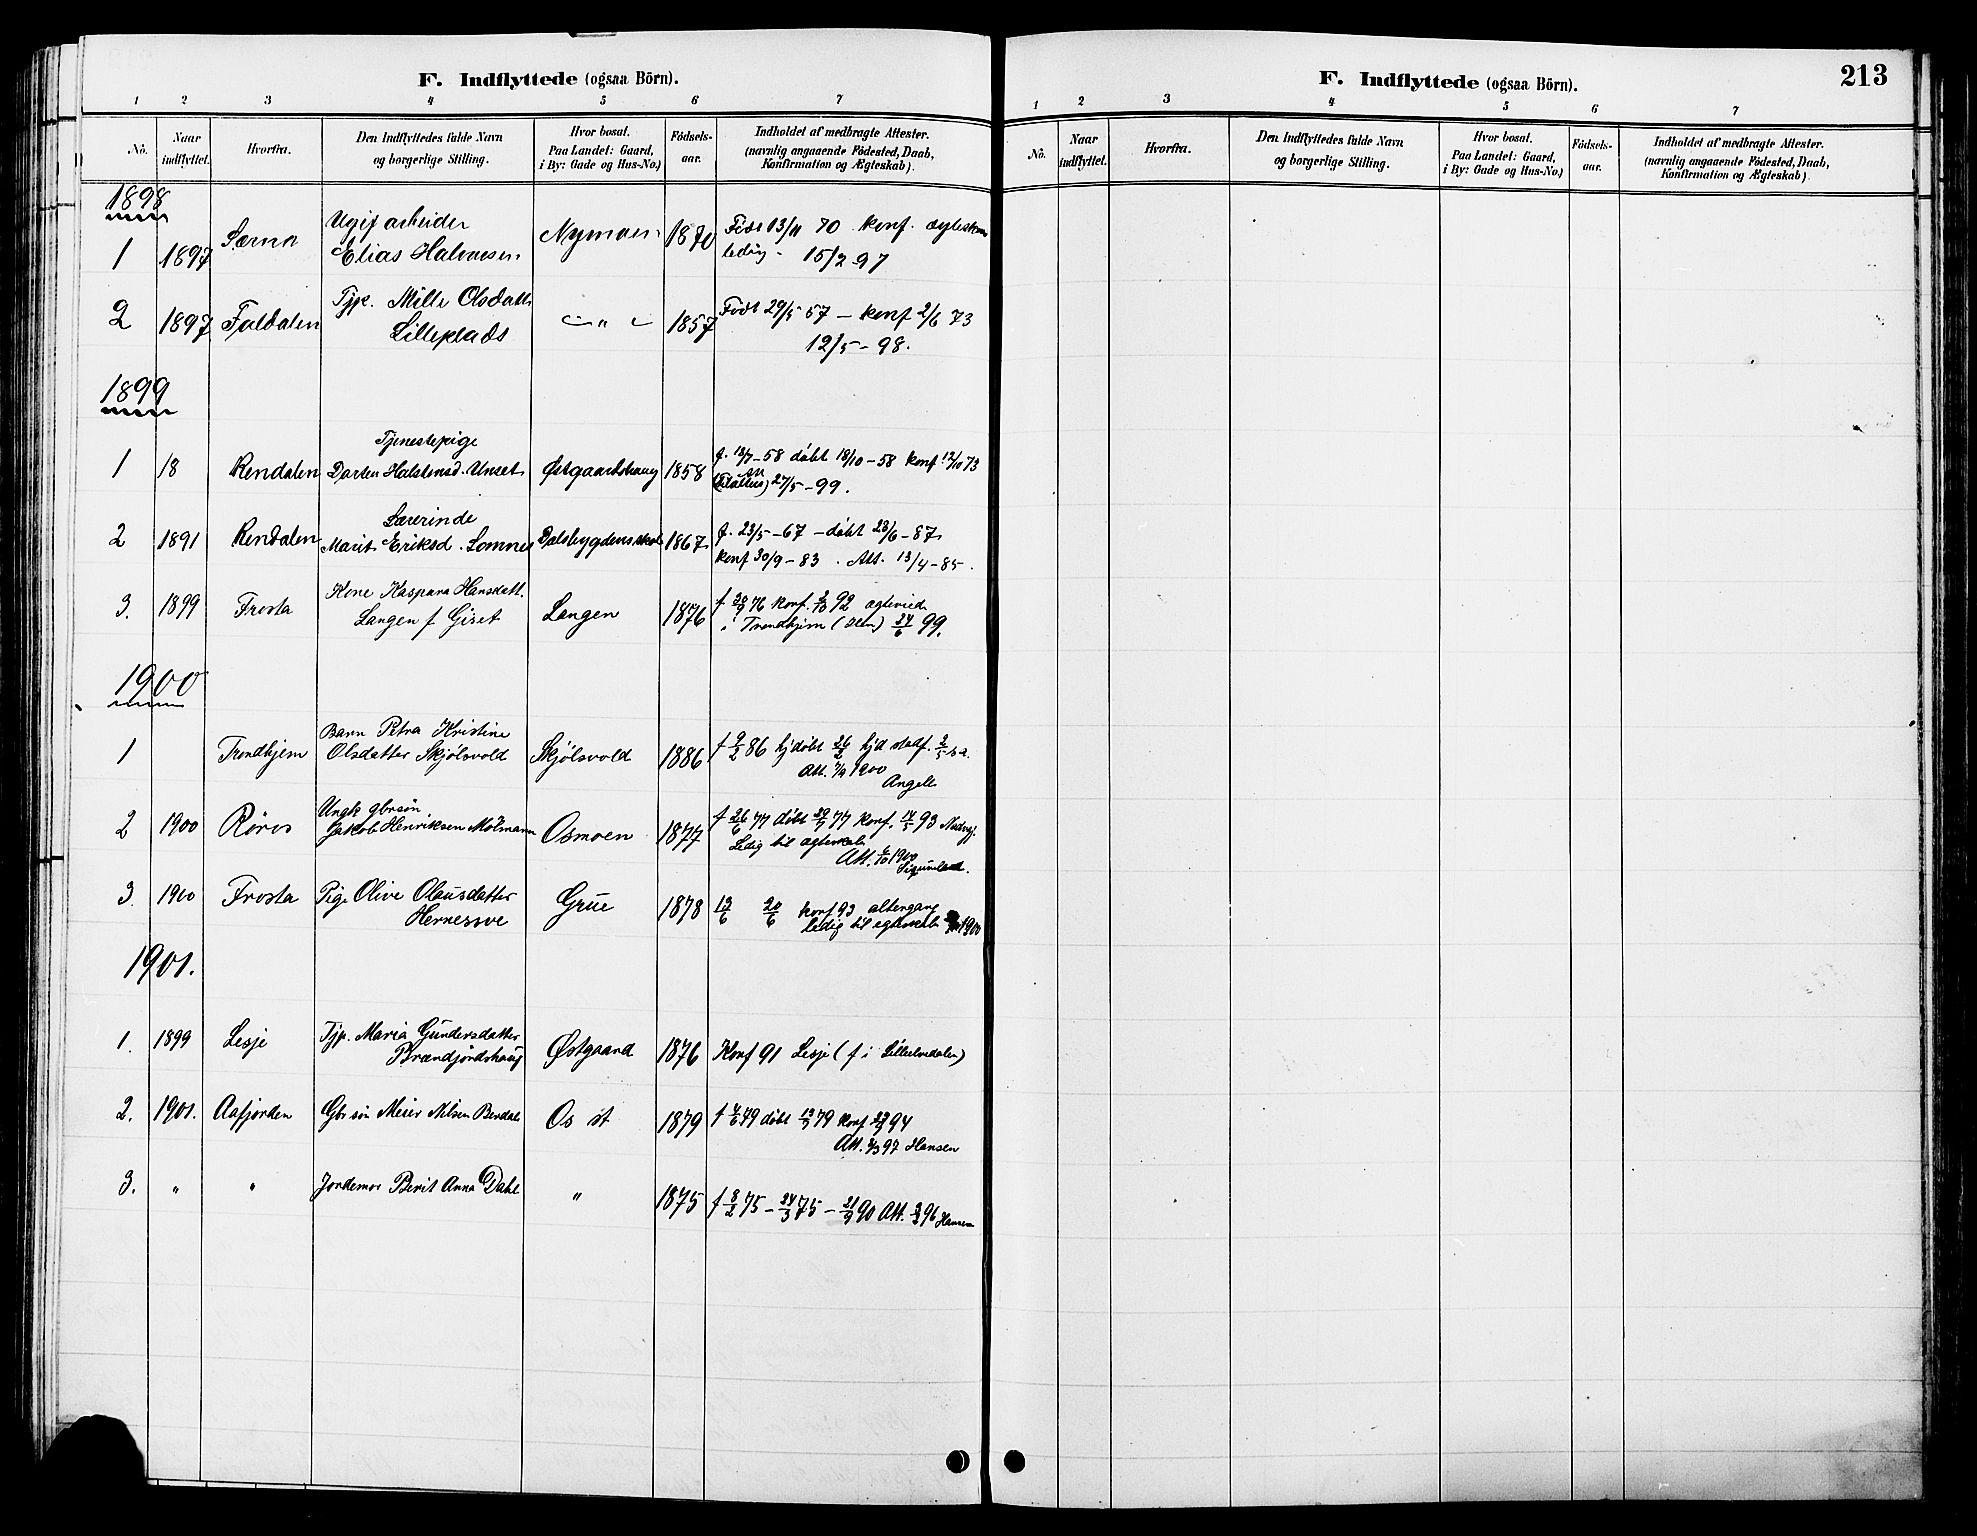 F. Indflyttede (ogsaa Börn).
1 2 3 4 5 6 7
No. Naar indflyttet. Hvorfra. Den Indflyttedes fulde Navn og borgerlige Stilling. Hvor bosat. Paa Landet: Gaard, i By: Gade og Hus-No.) Födsels-aar. Indholdet af medbragte Attester. (navnlig angaaende Födested, Daab, Konfirmation og Ægteskab).
1898
Ugif arbeider
1 1897 Særna Elias Halvorsen Nymoen 1870 Född 13/11 70 konf.
ledig - 15/2 97
Tjp. Mille Olsdatt
2 1897 Foldalen Lilleplads - " - 1857 Født 29/5 57 - konf 2/6 73
12/5 - 98.
1899
Tjenestepige
1 18 Rendalen Dorten Halstensd. Unset Østgaardshaug 1858 f. 13/7 - 58 døbt 18/10 - 58 konf 12/10 73
27/5 - 99.
Lærerinde
2 1891 Rendalen Marit Eriksd. Lomnes Dalsbygdens skol 1867 f. 23/5 - 67 - døbt 23/6 - 87
konf 30/9 - 83 . Att. 13/4 - 85.
Kone Kaspara Hansdatt.
3. 1899 Frosta Langen f Giset Langen 1876 f 76 konf. 92 egteviet
i Trondhjem 24/6 99.
1900
Barn Petra Kristine
1 Trondhjem Olsdatter Skjølsvold Skjølsvold 1886 f 9/2 86 hjdøbt 26/2 hjd stadf. 2/5 s. a.
Att. 1900
Angell
Ungk gbrsøn
2 1900 Röros Jakob Henriksen Mølmann Osmoen 1877 f 26/6 77 døbt 29/7 77 konf. 93
Ledig til egteskab
Att. 1900
3. 1900 Frosta Pige Olive Olausdatter Grue 1878 13/6 20/6 konf 93 altergang
Hernessve ledig til egteskab 1900
1901.
1. 1899 Lesje Tjp. Maria Gundersdatter Østgaard 1876 Konf 91 Lesje (f i Lilleelvdalen)
Brændjordshaug
2. 1901. Aafjorden Gbr søn Meier Nilsen Berdal Os st 1879 f 79 døbt 79 konf 94
Att. 97 Hansen
3. " " Jordemor Berit Anna Dahl " 1875 f 8/2 75 - 24/3 75 - 21/9 90 Att. 96 Hansen
F. Indflyttede (ogsaa Börn). 213
1 2 3 4 5 6 7
No. Naar indflyttet. Hvorfra. Den Indflyttedes fulde Navn og borgerlige Stilling. Hvor bosat. Paa Landet: Gaard, i By: Gade og Hus-No.) Födsels-aar. Indholdet af medbragte Attester. (navnlig angaaende Födested, Daab, Konfirmation og Ægteskab).